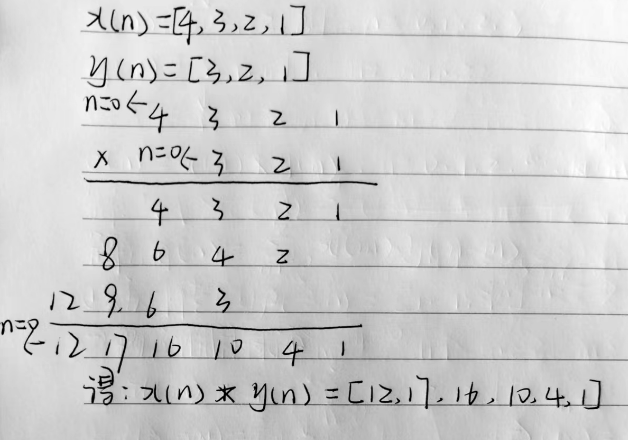 x(n)=[4,3,2,1]
y(n)=[3,2,1]
n=0← 4 3 2 1
× n=0← 3 2 1
4 3 2 1
8 6 4 2
12 9 6 3
n=0← 12 17 16 10 4 1
得: x(n) * y(n) = [12,17,16,10,4,1]